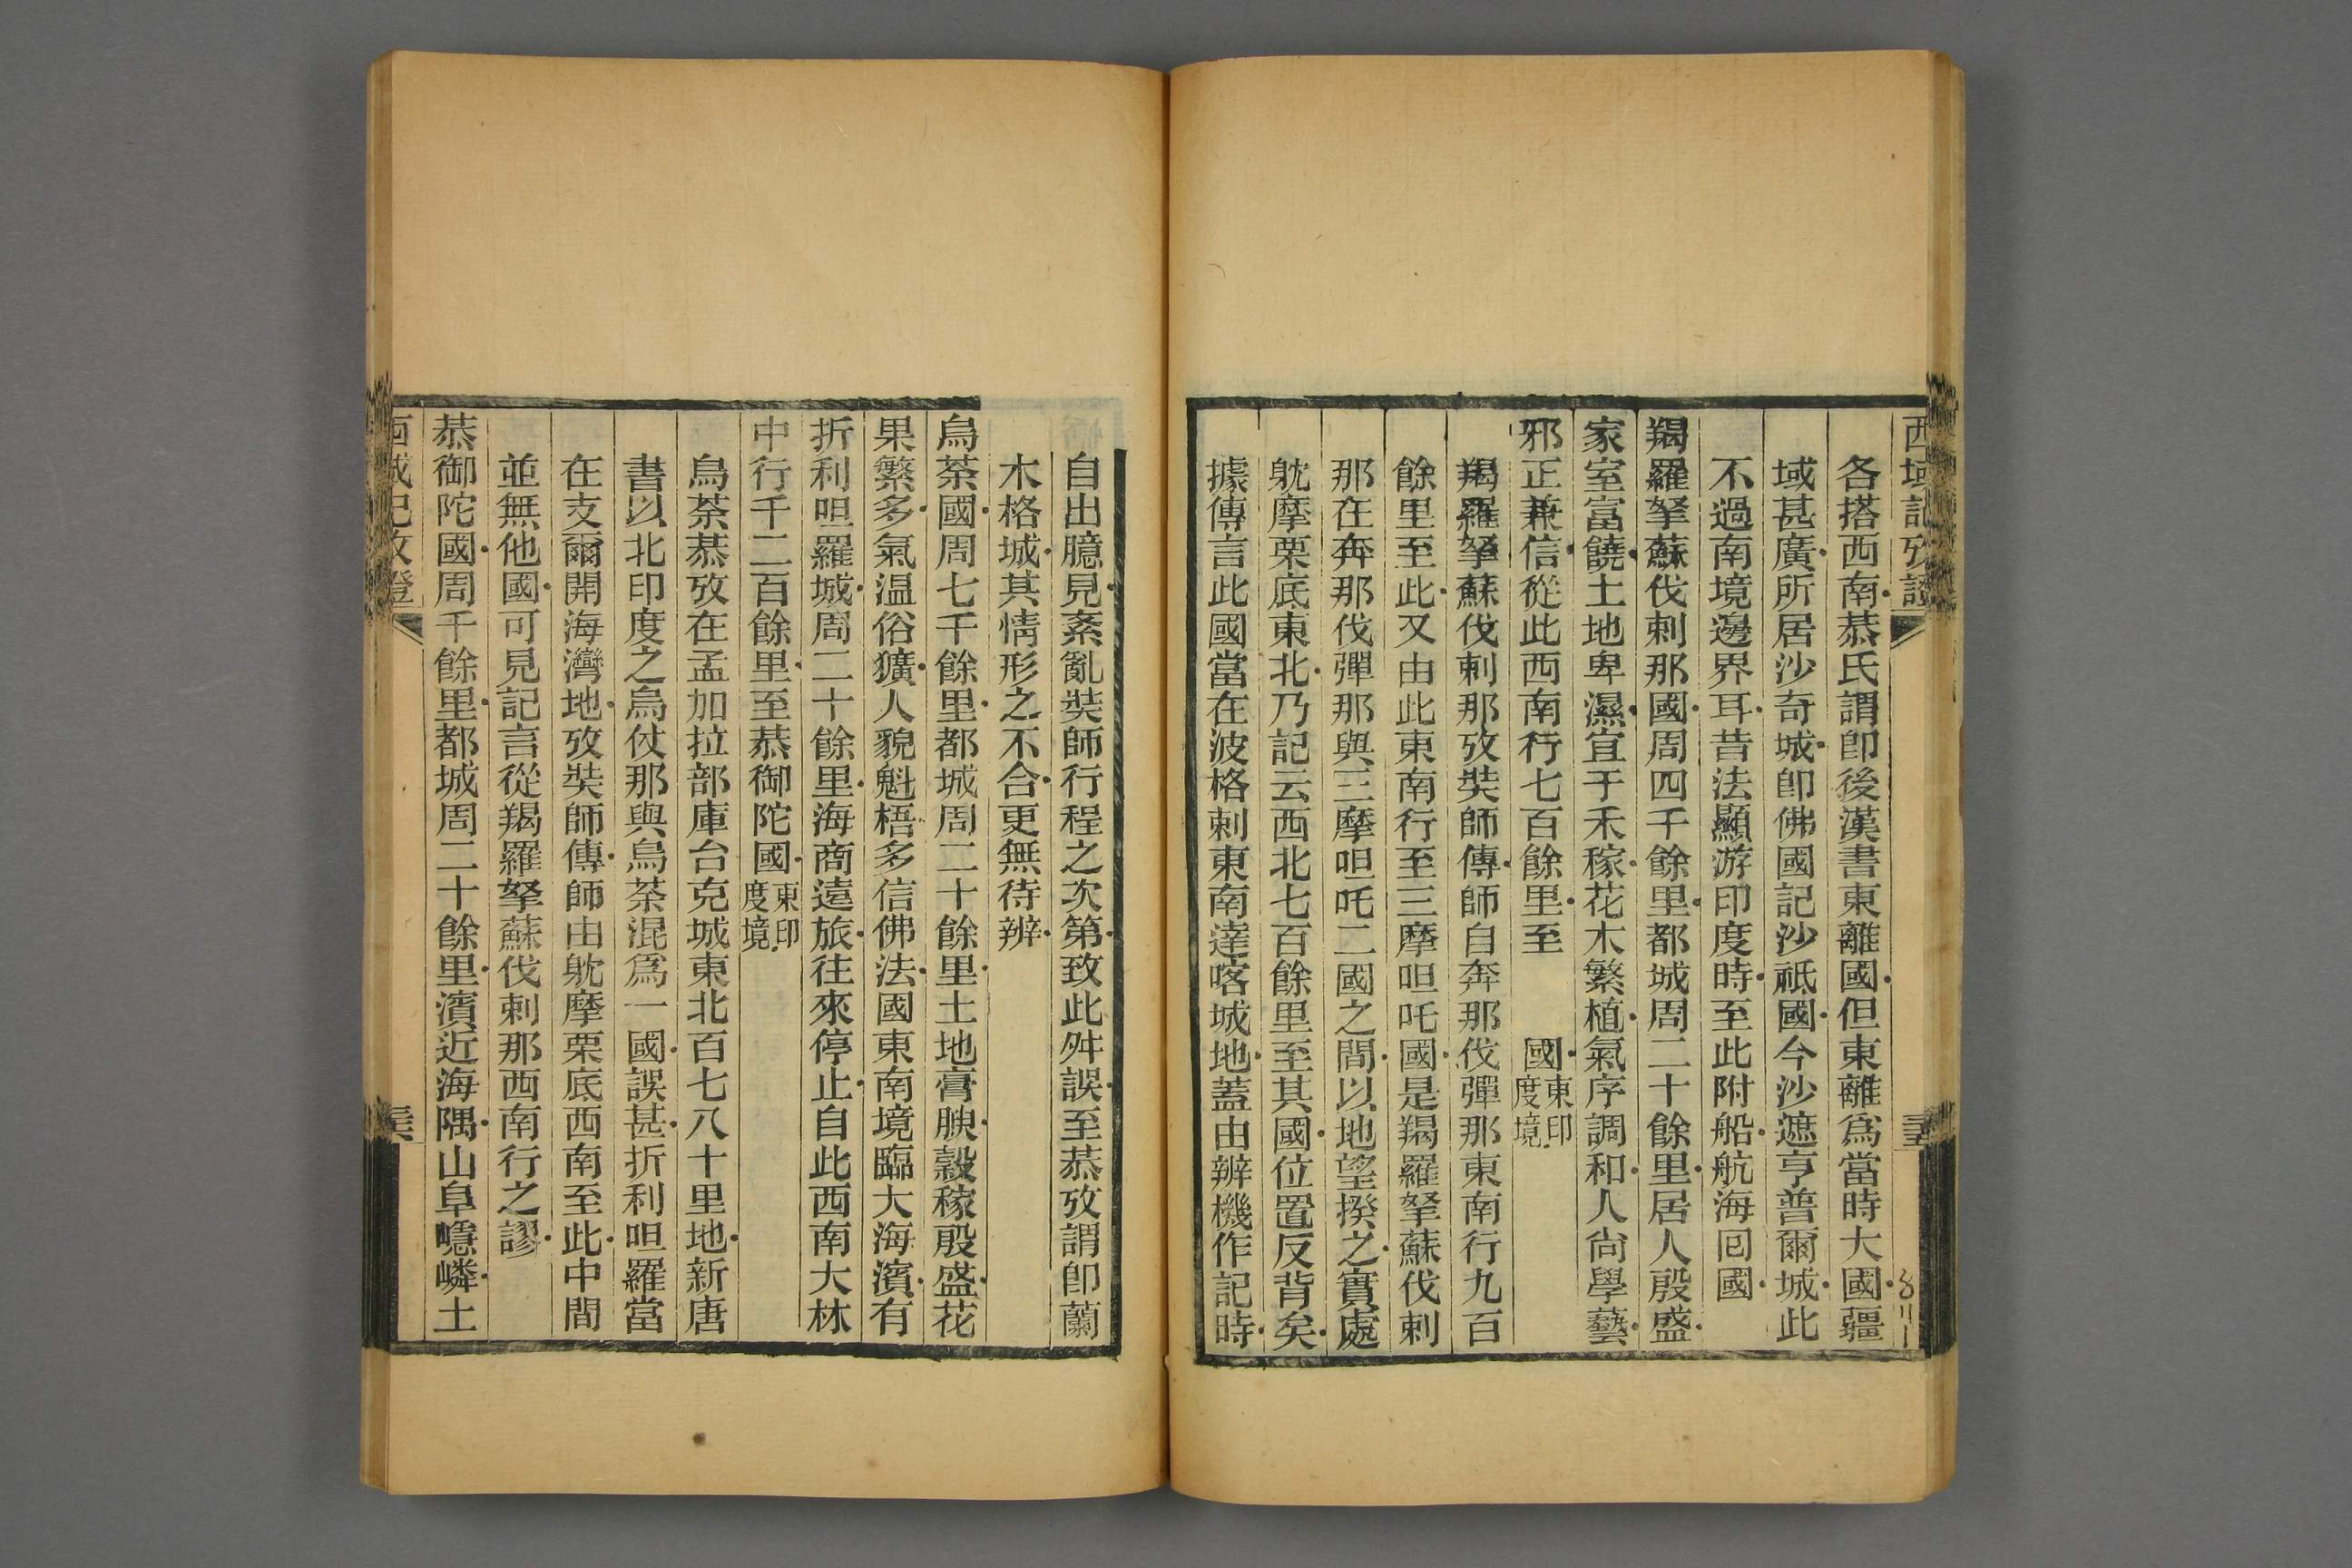 西域記攷證
各搭西南恭氏謂卽後漢書東離國但東離爲當時大國疆
域甚廣所居沙奇城卽佛國記沙祇國今沙遮亨普爾城此
不過南境邊界耳昔法顯游印度時至此附船航海囘國
羯羅拏蘇伐剌那國周四千餘里都城周二十餘里居人殷盛
家室富饒土地卑濕宜于禾稼花木繁植氣序調和人尙學藝
邪正兼信從此西南行七百餘里至 國東印度境
羯羅拏蘇伐剌那攷奘師傳師自奔那伐彈那東南行九百
餘里至此又由此東南行至三摩呾吒國是羯羅拏蘇伐剌
那在奔那伐彈那與三摩呾吒二國之間以地望揆之實處
躭摩栗底東北乃記云西北七百餘里至其國位置反背矣
據傳言此國當在波格剌東南達喀城地蓋由辨機作記時
自出臆見紊亂奘師行程之次第致此舛誤至恭攷謂卽蘭
木格城其情形之不合更無待辨
烏荼國周七千餘里都城周二十餘里土地膏腴穀稼殷盛花
果繁多氣温俗獷人貌魁梧多信佛法國東南境臨大海濱有
折利呾羅城周二十餘里海商遠旅往來停止自此西南大林
中行千二百餘里至恭御陀國東印度境
烏荼恭攷在孟加拉部庫台克城東北百七八十里地新唐
書以北印度之烏仗那與烏荼混爲一國誤甚折利呾羅當
在支爾開海灣地攷奘師傳師由躭摩栗底西南至此中間
並無他國可見記言從羯羅拏蘇伐剌那西南行之謬
恭御陀國周千餘里都城周二十餘里濱近海隅山阜嶾嶙土
西域記攷證